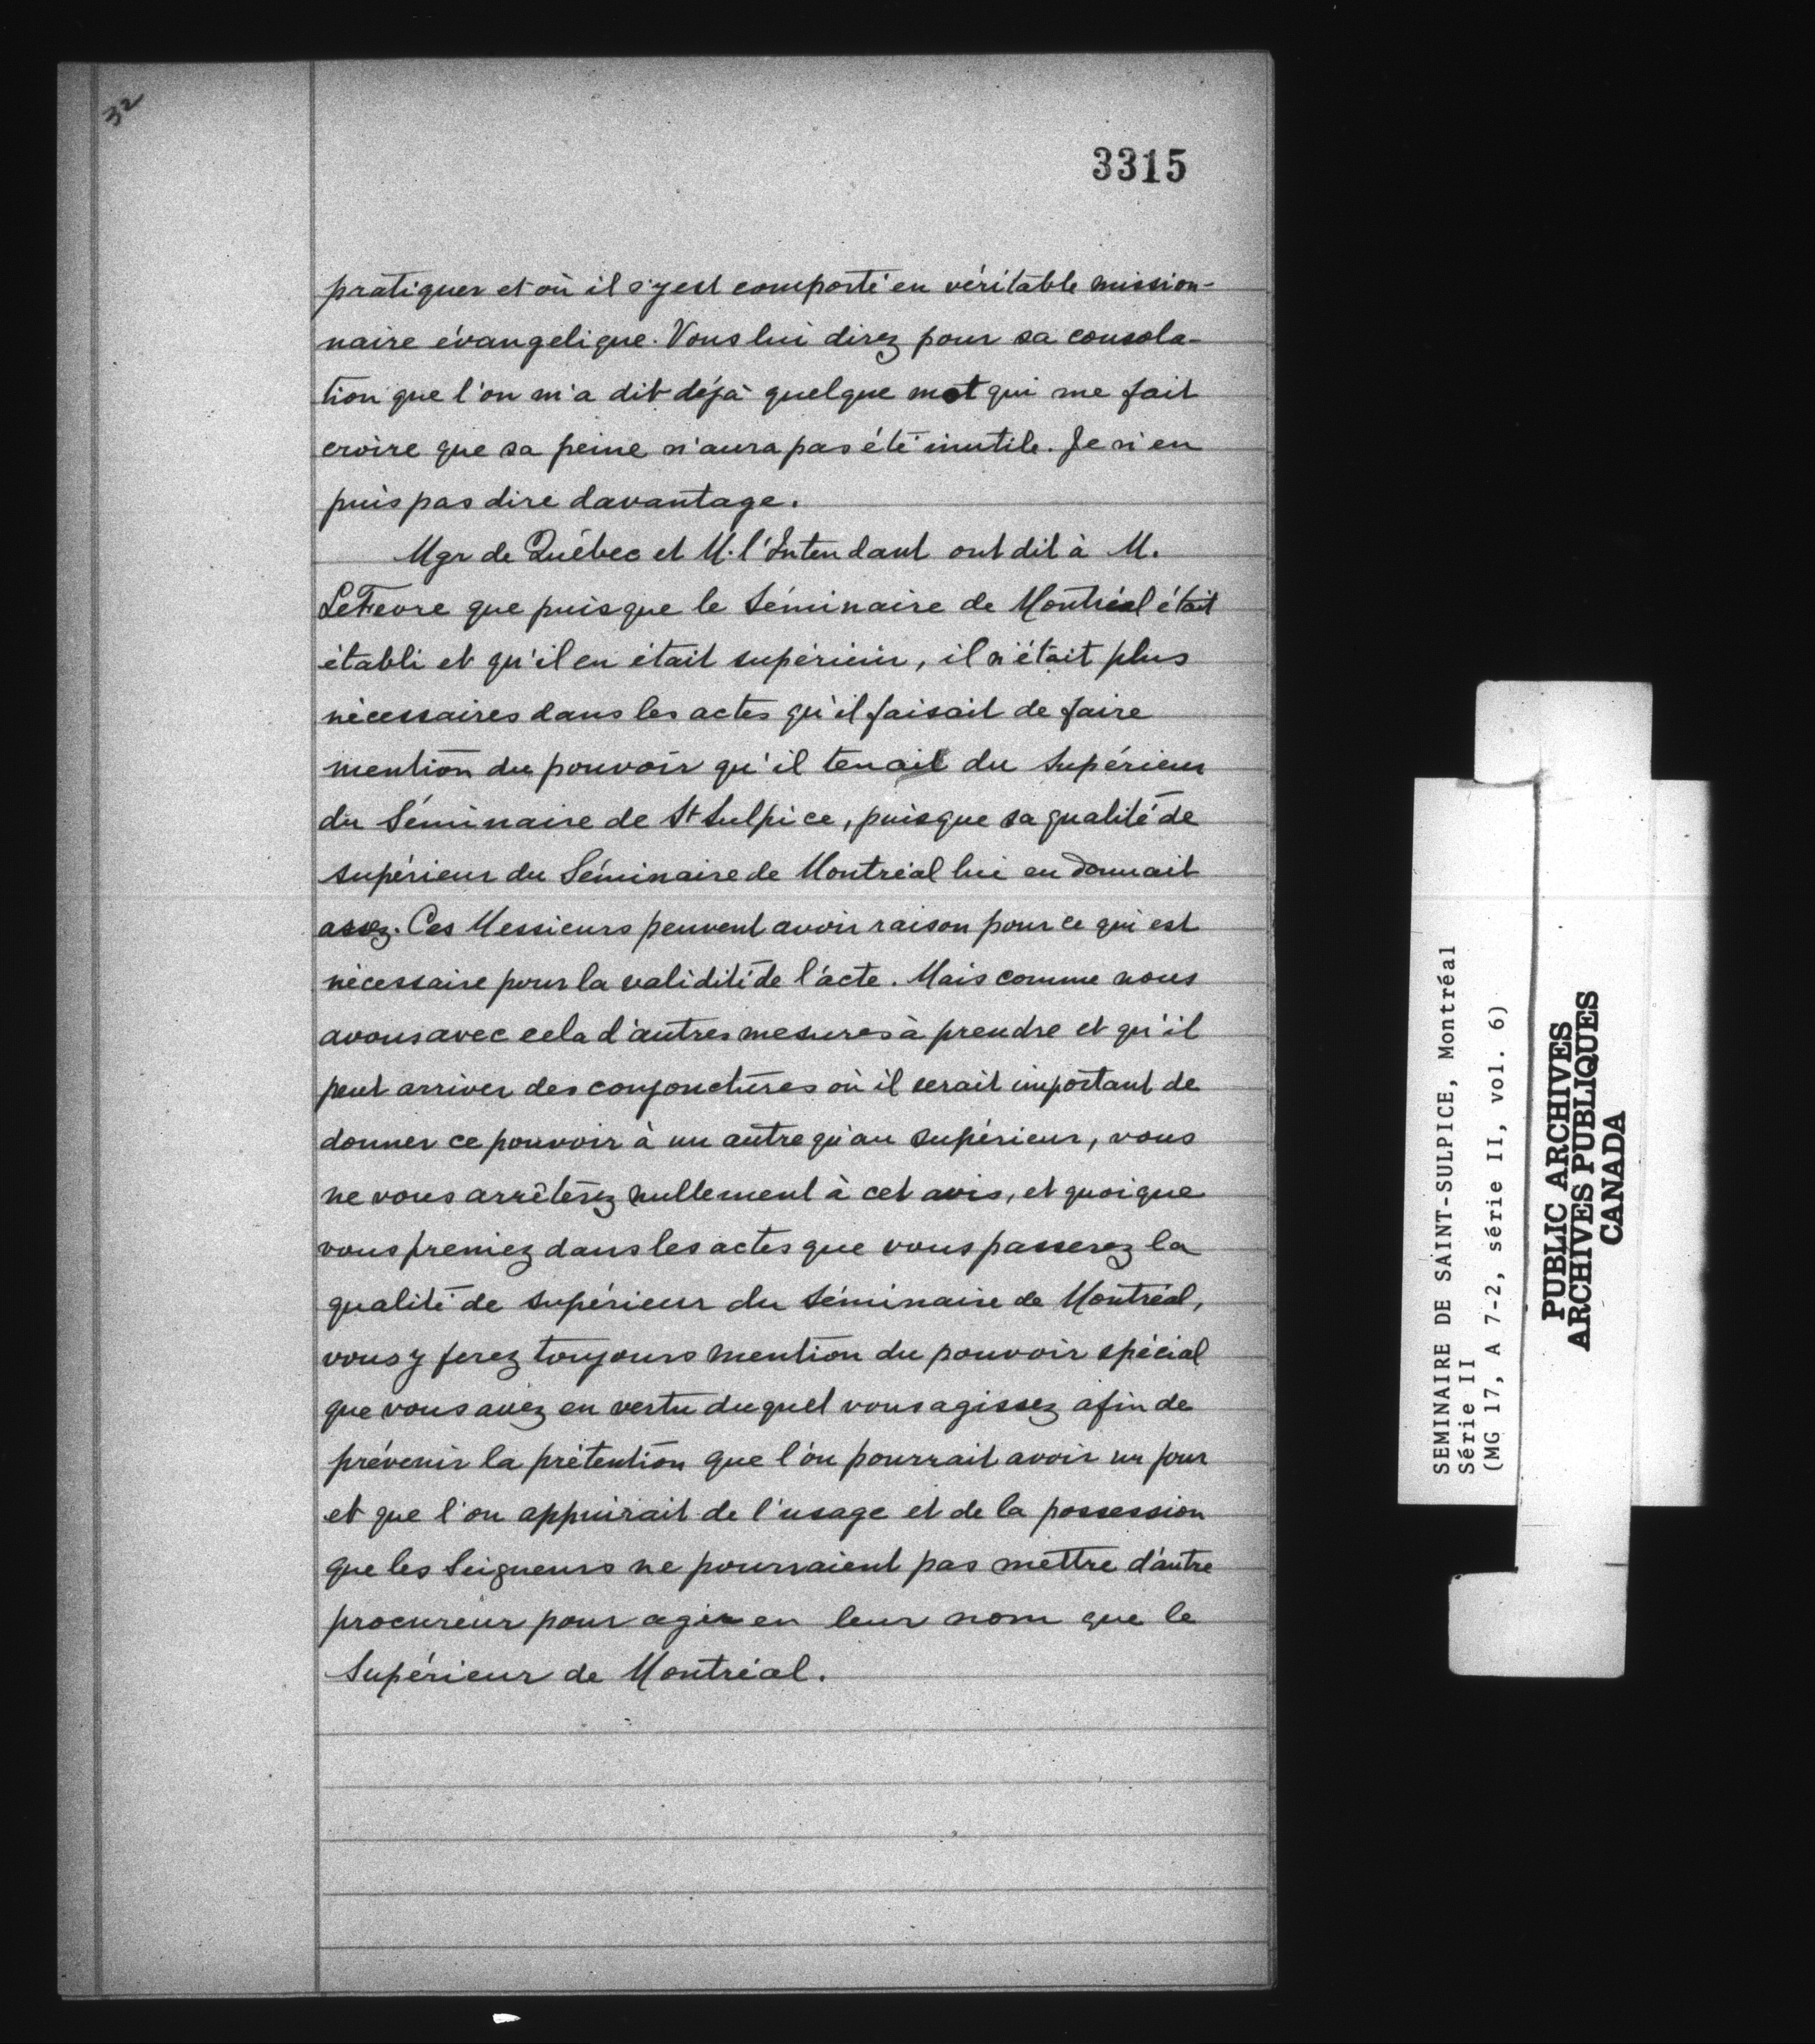 32
3315
pratiquer et où il s'y est comporté en véritable mission-
naire évangelique. Vous lui direz pour sa consola-
tion que l'on m'a dit déjà quelque mot qui me fait
croire que sa peine n'aura pas été inutile. Je n'en
puis pas dire davantage.
Mgr de Québec et M. l'Intendant ont dit à M.
LeFevre que puisque le Séminaire de Montréal était
établi et qu'il en était supérieur, il n'était plus
nécessaires dans les actes qu'il faisait de faire
mention du pouvoir qu'il tenait du Supérieur
du Séminaire de St Sulpice, puisque sa qualité de
supérieur du Séminaire de Montréal lui en donnait
assez. Ces Messieurs peuvent avoir raison pour ce qui est
nécessaire pour la validité de l'acte. Mais comme nous
avons avec cela d'autres mesures à prendre et qu'il
peut arriver des conjonctures où il serait important de
donner ce pouvoir à un autre qu'au supérieur, vous
ne vous arrêterez nullement à cet avis, et quoique
vous preniez dans les actes que vous passerez la
qualité de supérieur du séminaire de Montréal,
vous y ferez toujours mention du pouvoir spécial
que vous avez en vertu duquel vous agissez afin de
prévenir la prétention que l'on pourrait avoir un jour
et que l'on appuirait de l'usage et de la possession
que les Seigneurs ne pourraient pas mettre d'autre
procureur pour agir en leur nom que le
Supérieur de Montréal.
SEMINAIRE DE SAINT-SULPICE, Montréal
Série II
(MG 17, A 7-2, série II, vol. 6)
PUBLIC ARCHIVES
ARCHIVES PUBLIQUES
CANADA